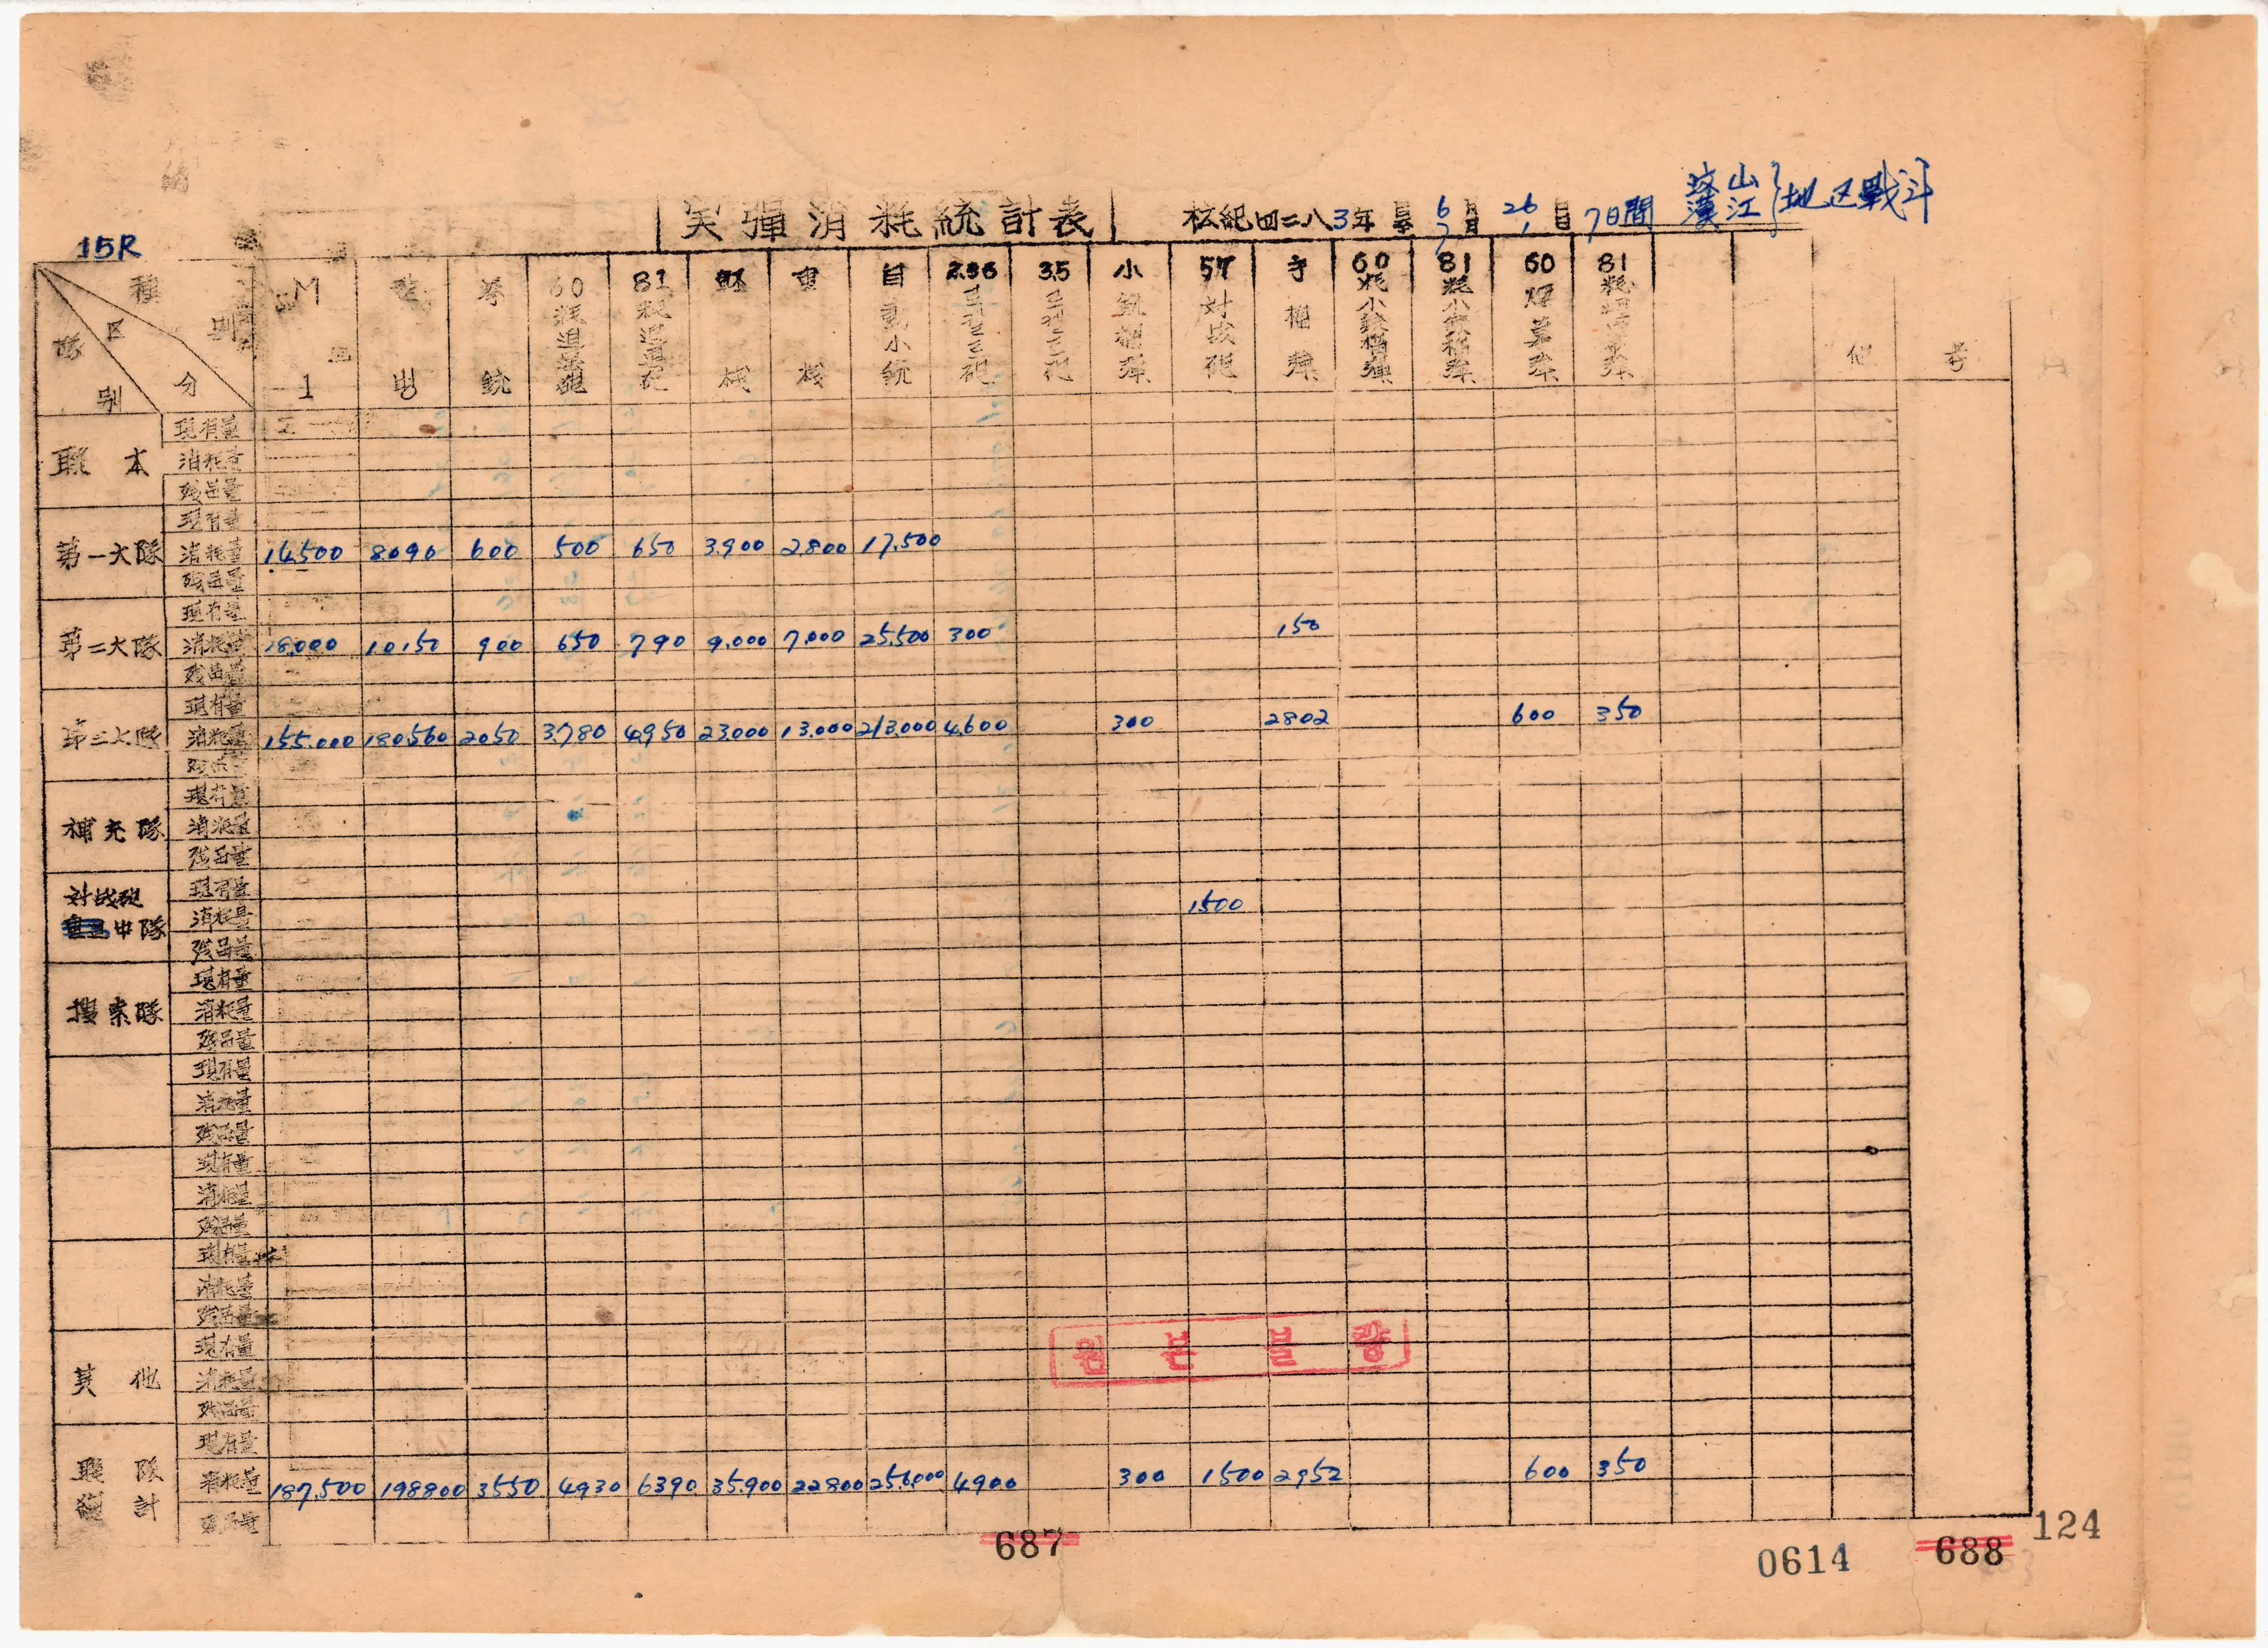 実彈消耗統計表 檀紀四二八3年 自至 6月 26日 7月 1日 7日間 汶山 漢江 地区戰斗
15R
種別 区分 隊別 M1 카빙 拳銃 60粍迫撃砲 81粍迫撃砲 軽機 重機 自動小銃 2.36로켙트砲 3.5로켙트砲 小銃榴弾 57対战砲 手榴弾 60粍小銃榴弾 81粍小銃榴弾 60煙幕弾 81粍煙幕弾 他 考
聯本 現有量
消耗量
残留量
第一大隊 現有量
消耗量 14500 8090 600 500 650 3.900 2800 17.500
残留量
第二大隊 現有量
消耗量 18.000 10150 900 650 790 9.000 7.000 25.500 300 150
残留量
第三大隊 現有量
消耗量 155.000 180560 2050 3.780 4950 23.000 13.000 213.000 4.600 300 2802 600 350
残留量
補充隊 現有量
消耗量
残留量
対战砲中隊 現有量
消耗量 1500
残留量
搜索隊 現有量
消耗量
残留量
現有量
消耗量
残留量
現有量
消耗量
残留量
現有量
消耗量
残留量
其他 現有量
消耗量
残留量
聯隊總計 現有量
消耗量 187.500 198800 3550 4930 6390 35.900 22800 256.000 4900 300 1500 2952 600 350
残留量
원본불량
687 0614 688 124